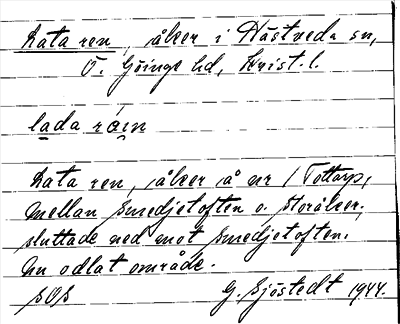 Lata ren, åker i Hästveda sn,
Ö. Göinge hd, Krist. l.
lada rɛ́in
Lata ren, åker å nr 1 Tottarp,
mellan Smedjetoften o. Storåker,
sluttade ned mot Smedjetoften.
Nu odlat område.
SOS G. Sjöstedt 1944.